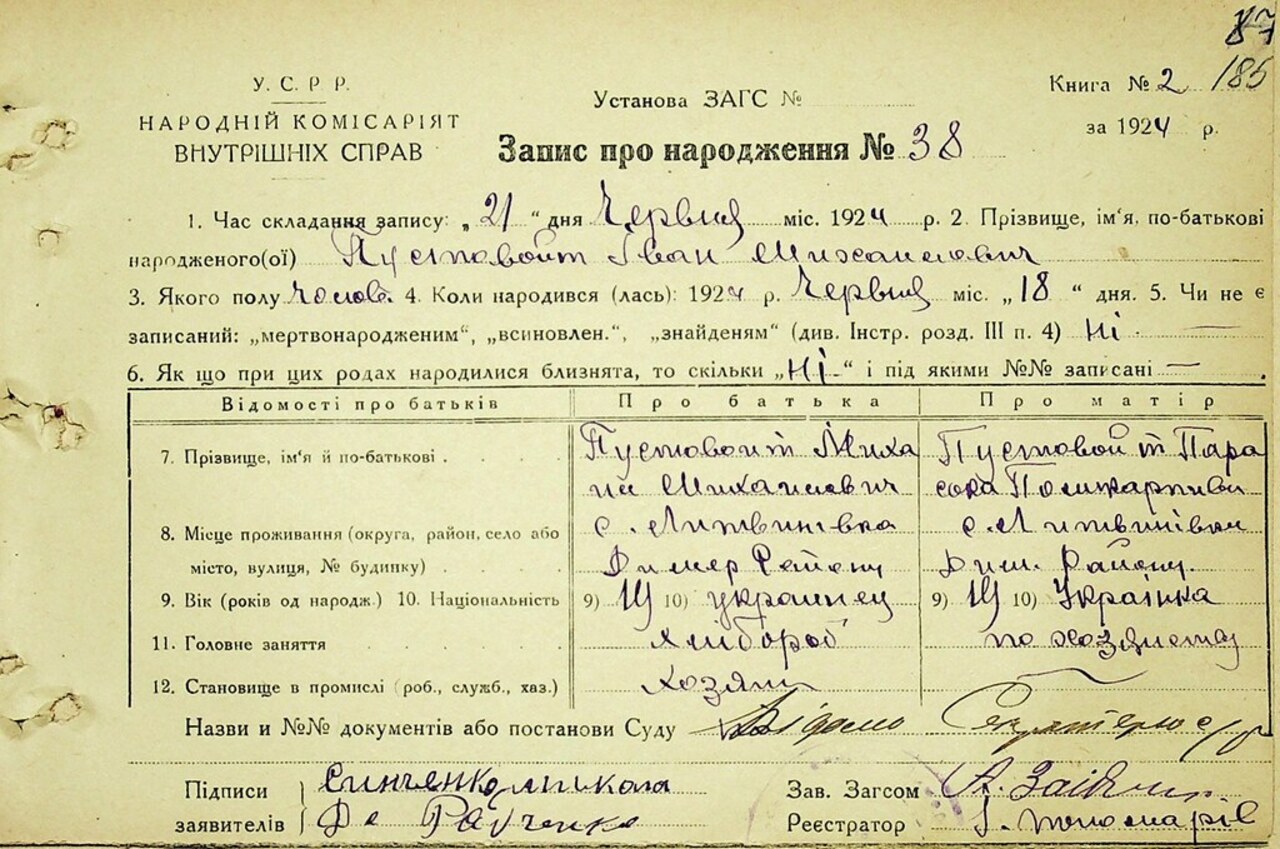 87
185
У. С. Р. Р.
НАРОДНІЙ КОМІСАРІЯТ
ВНУТРІШНІХ СПРАВ
Установа ЗАГС №
Книга № 2
за 1924 р.
Запис про народження № 38
1. Час складання запису: „21“ дня Червня міс. 1924 р. 2. Прізвище, ім'я, по-батькові
народженого(ої) Пустовойт Іван Михайлович
3. Якого полу Чолов. 4. Коли народився (лась): 1924 р. Червня міс. „18“ дня. 5. Чи не є
записаний: „мертвонародженим“, „всиновлен.“, „знайденям“ (див. Інстр. розд. III п. 4) Ні —
6. Як що при цих родах народилися близнята, то скільки „Ні“ і під якими №№ записані —
Відомості про батьків Про батька Про матір
7. Прізвище, ім'я й по-батькові Пустовоит Миха Пустовойт Пара
ил Михаилович сска Поликарпивн
8. Місце проживання (округа, район, село або с. Литвинівка с. Литвинівки
місто, вулиця, № будинку) Димер Району Дим. Району.
9. Вік (років од народж.) 10. Національність 9) 19 10) украинец 9) 19 10) Українка
11. Головне заняття хлібороб по хозяиству
12. Становище в промислі (роб., служб., хаз.) хозяин —
Назви и №№ документів або постанови Суду Відомо Секретарю с/р
Підписи
заявителів
Зав. Загсом
Реєстратор